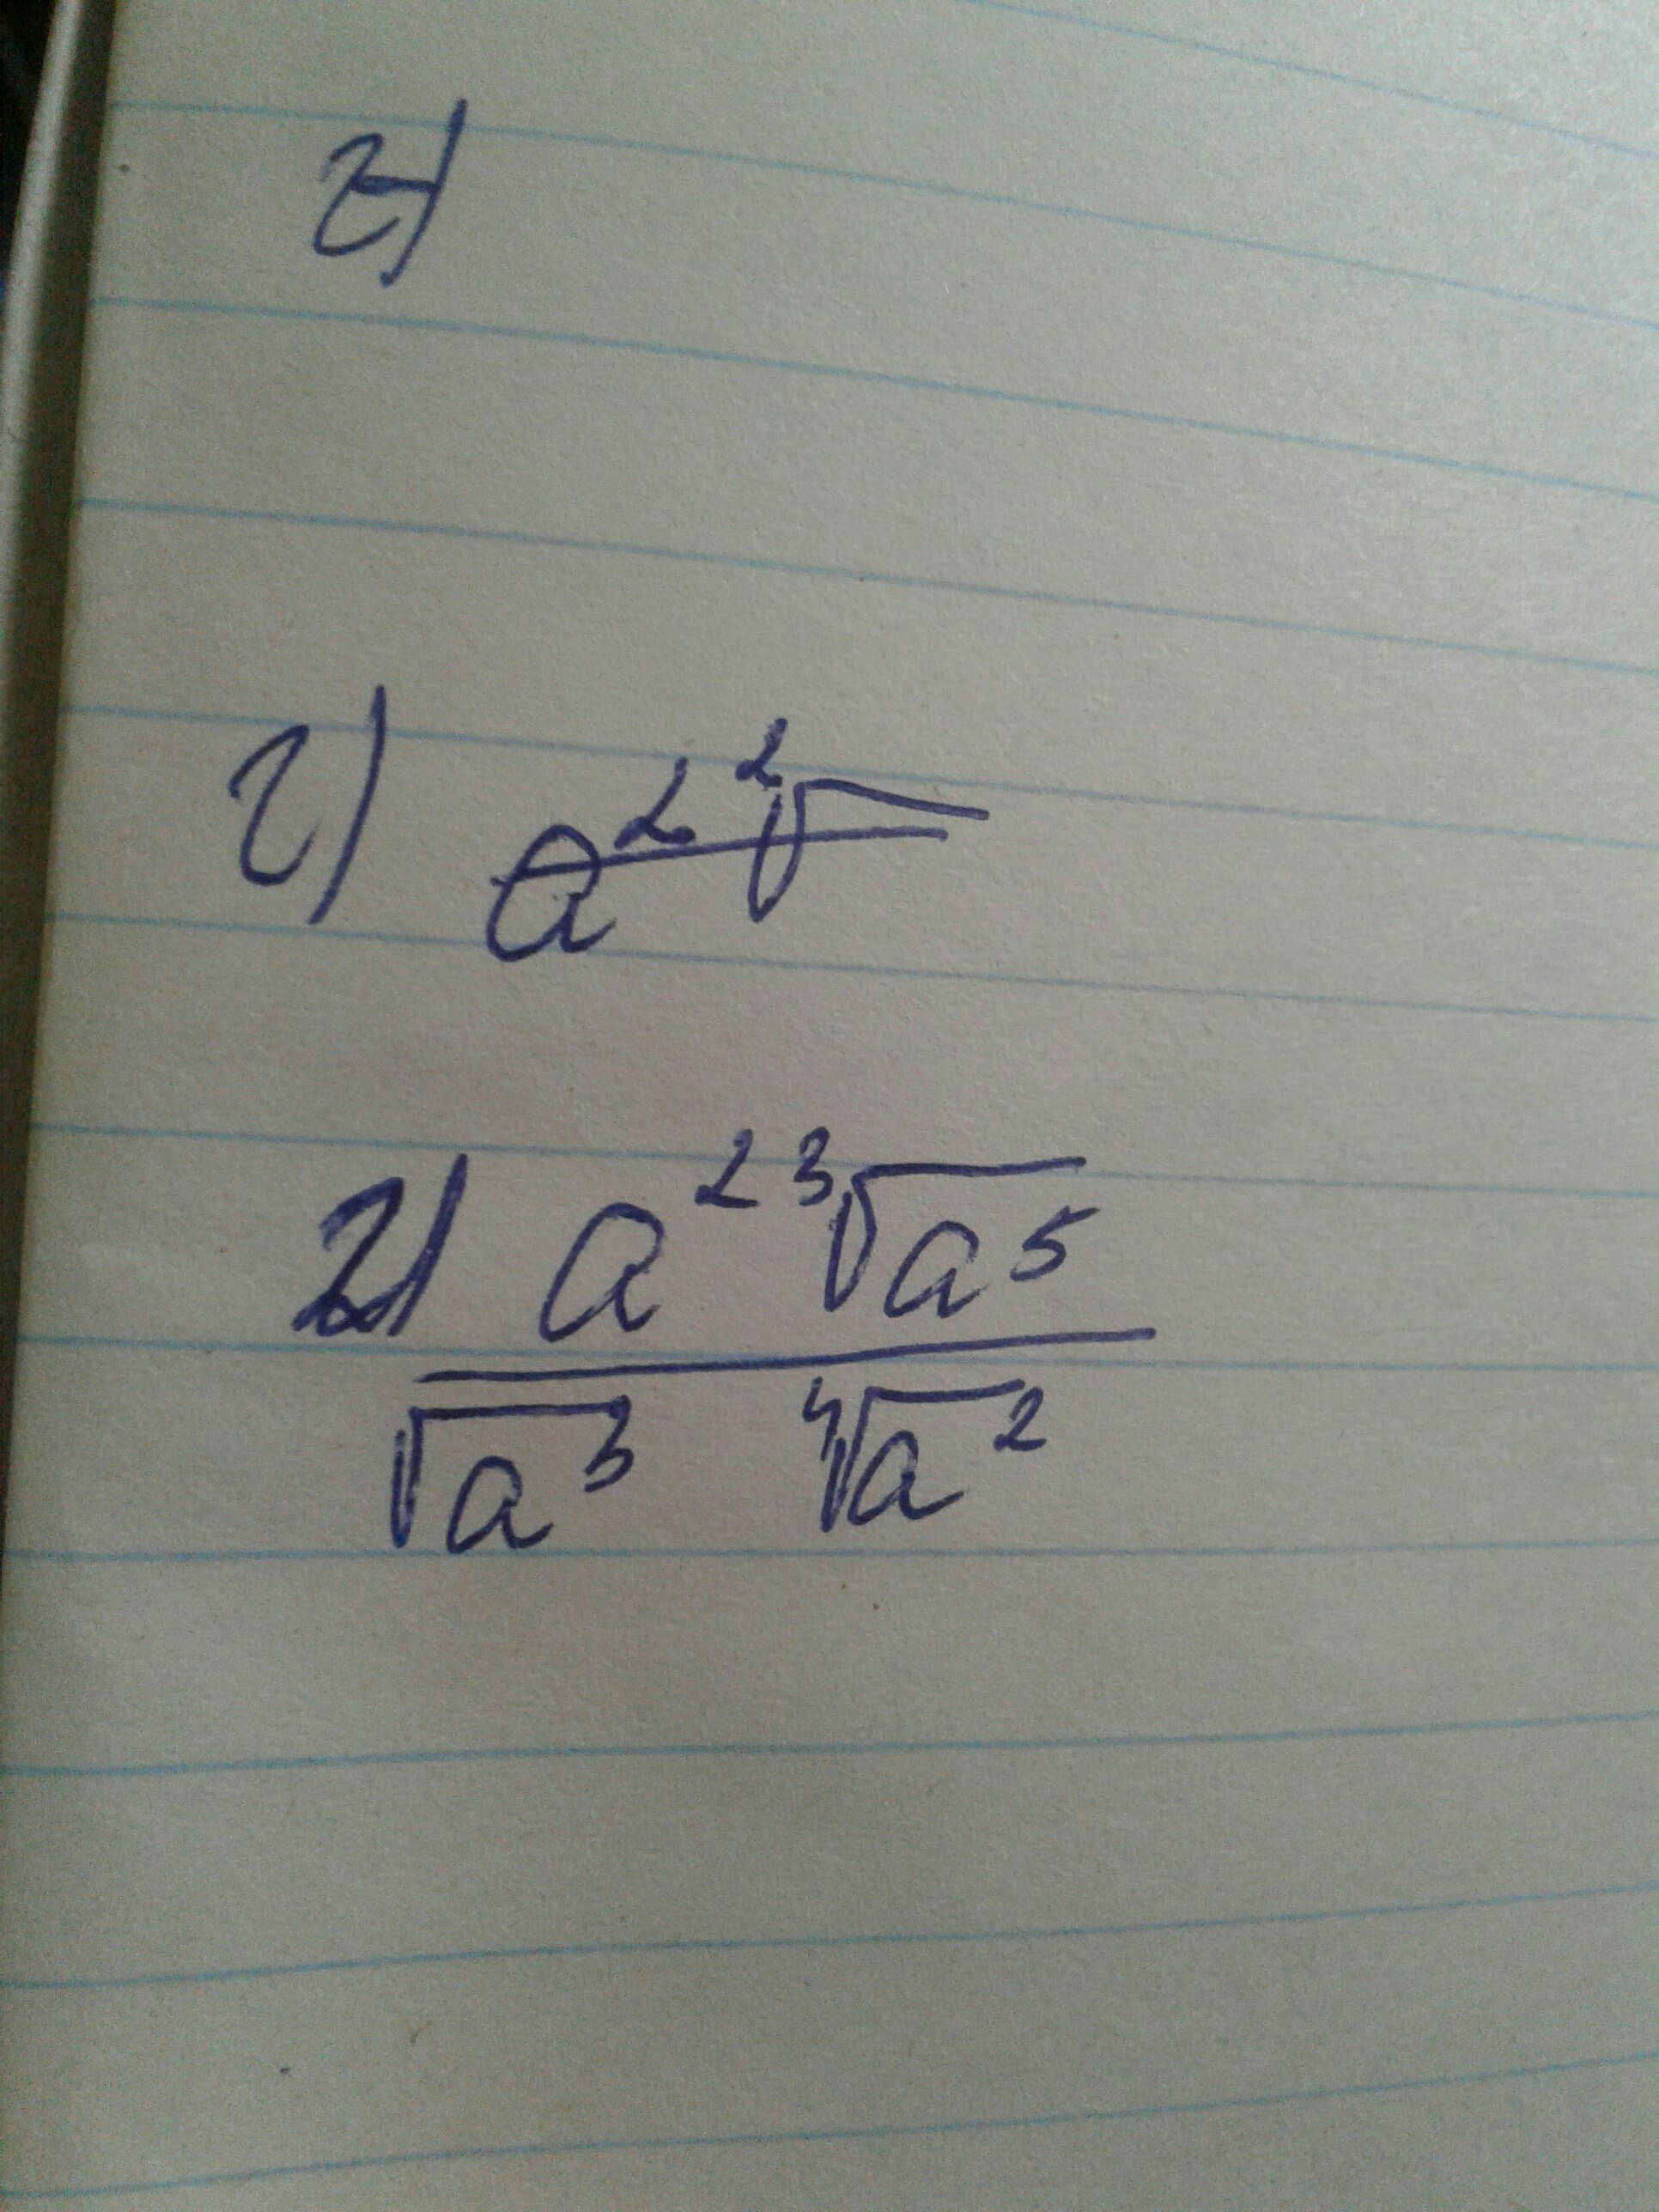 г)
г) a² ²√
г) a² ³√a⁵
√a³ ⁴√a²